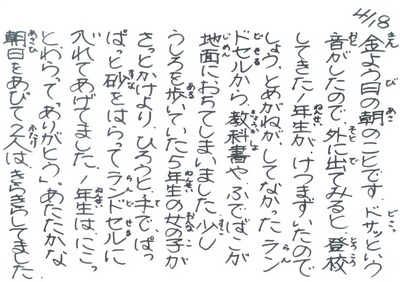 4/18
金よう日の朝のことです。ドサッという
音がしたので、外に出てみると、登校
してきた1年生が、けつまずいたので
しょう、とめがねがしてなかった、ラン
ドセルから、教科書やふでばこが
地面におちてしまいました。少し
うしろを歩いていた5年生の女の子が
さっとかけより、ひろうと、手で、ぱっ
ぱっと砂をはらって、ランドセルに
入れてあげてました。1年生は、にこっ
と、わらって「ありがとう」。あたたかな
朝日をあびて2人は、きらきらしてました。